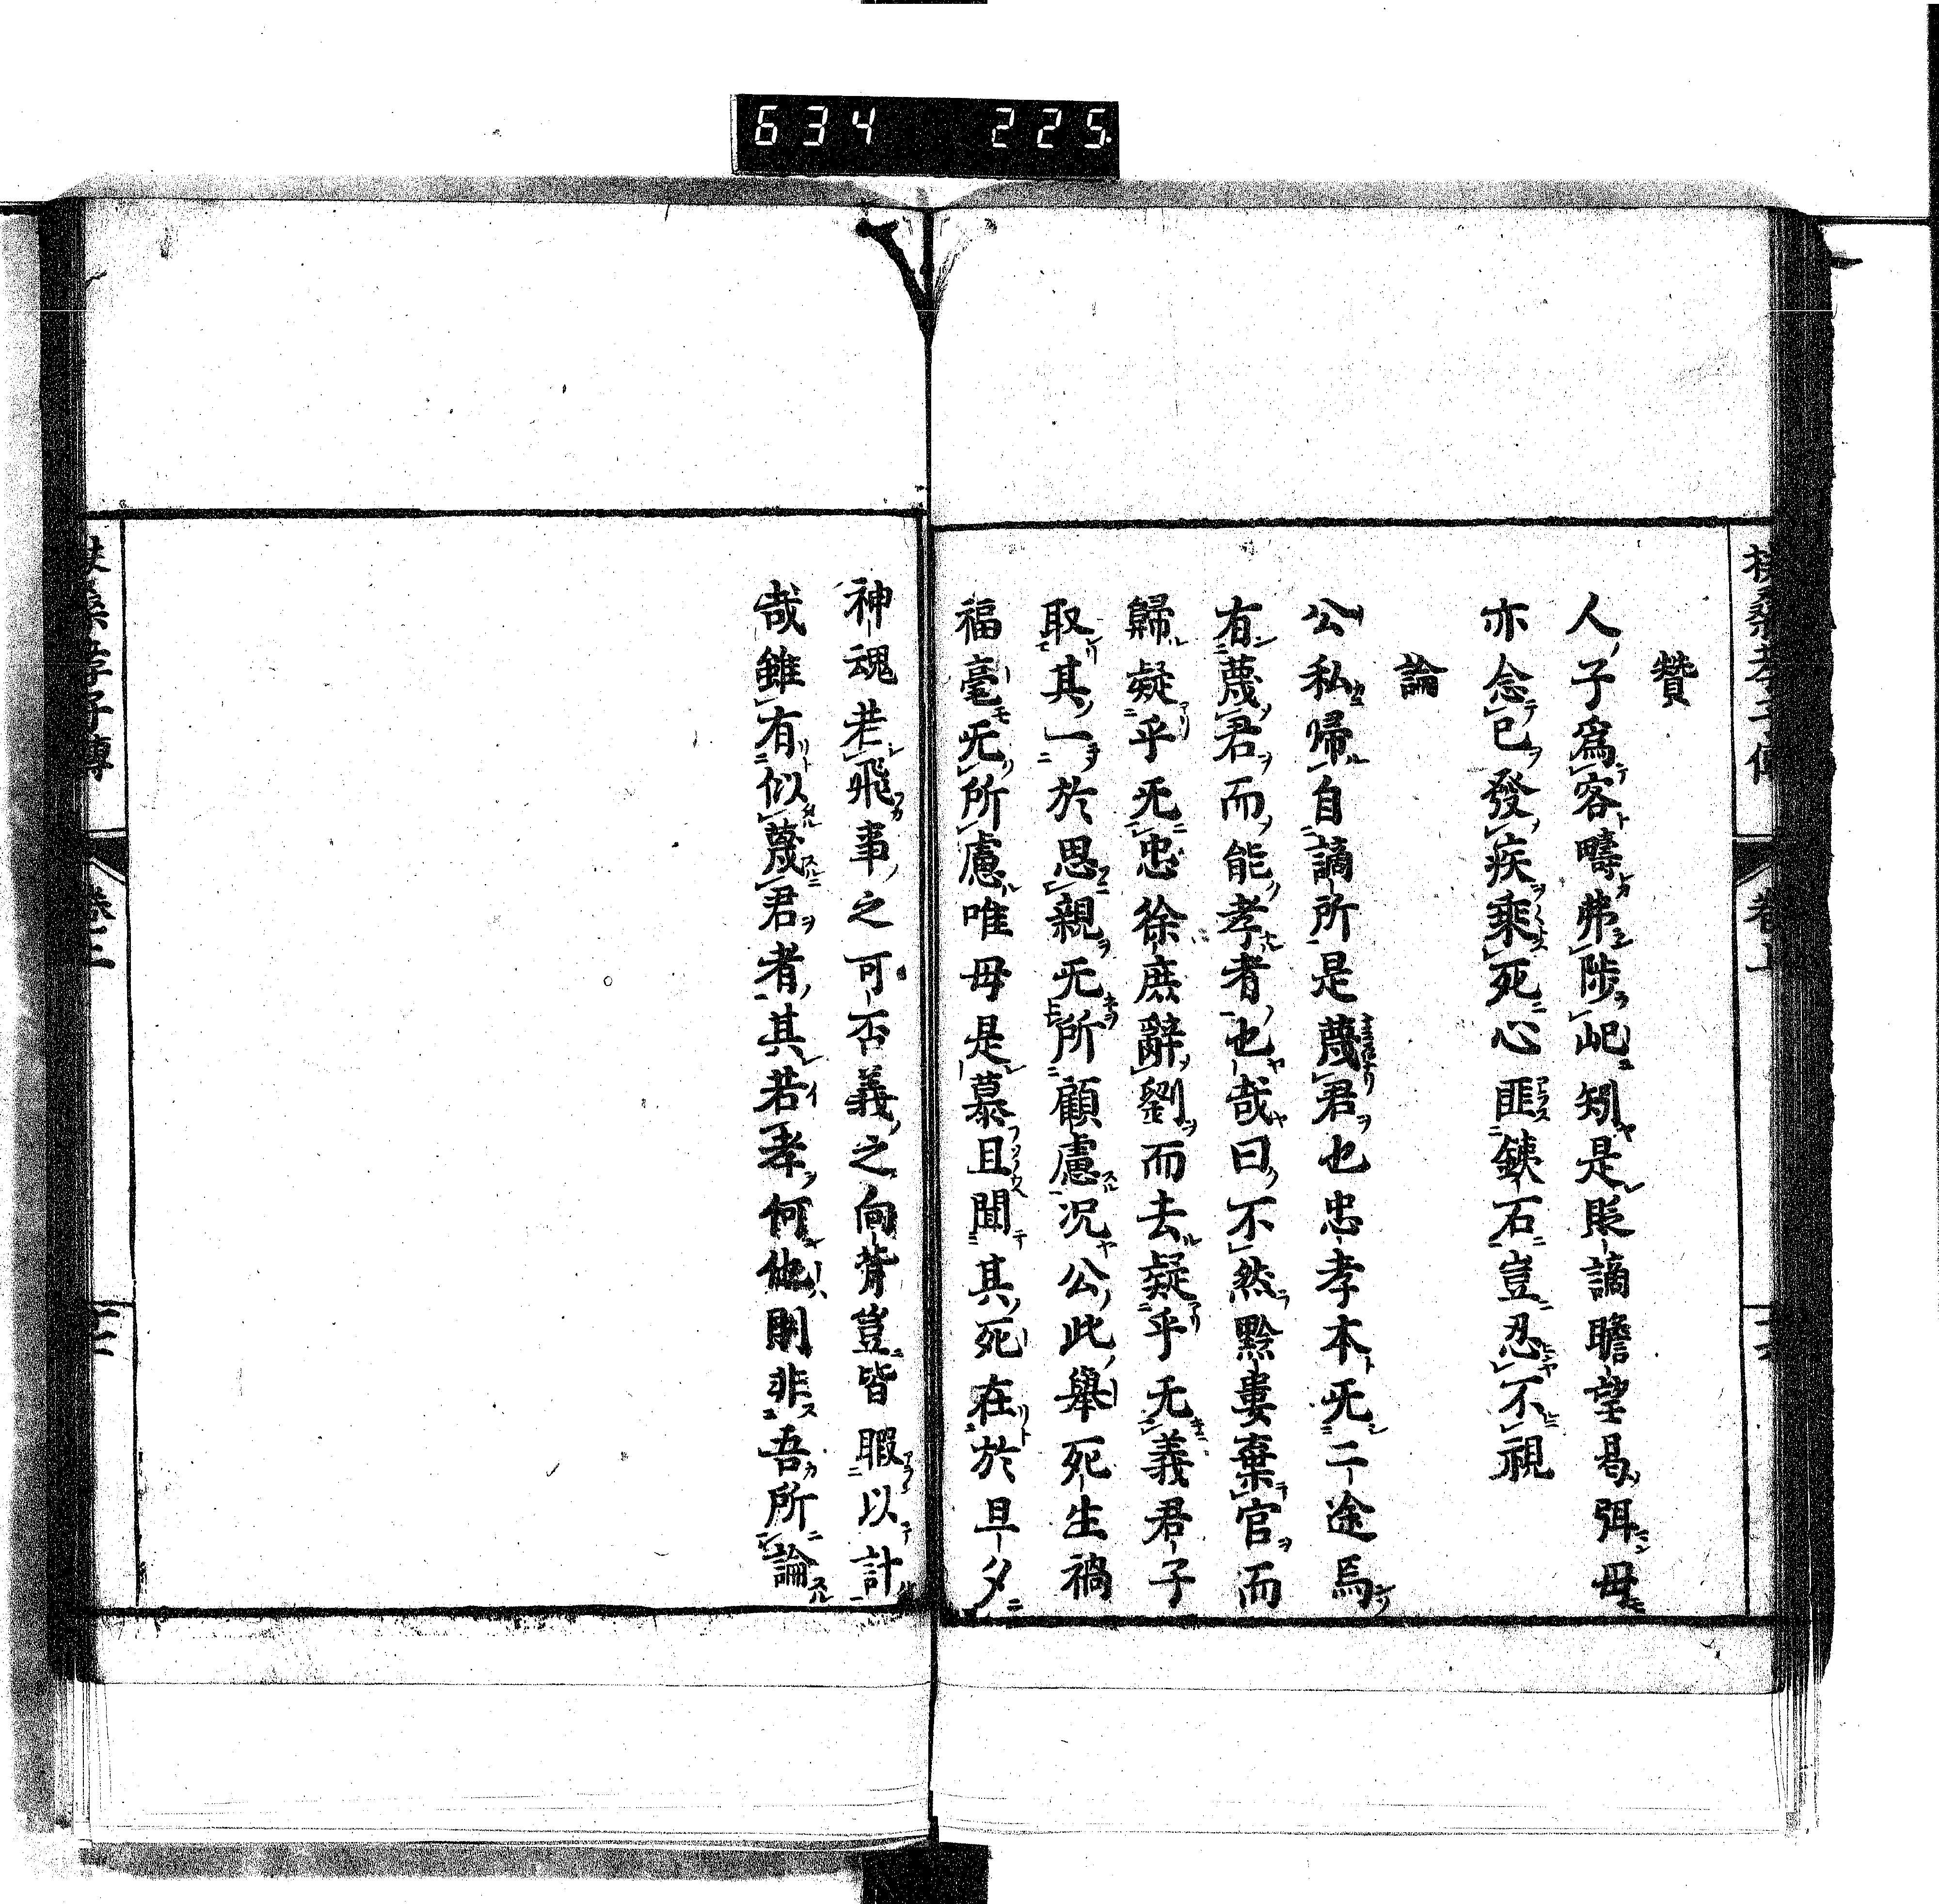 634 225
贊
人子爲客疇弗陟屺矧是貶謫瞻望曷弭母
亦念已發疾乘死心匪鐵石豈忍不視
論
公私歸自謫所是蔑君也忠孝本无二途焉
有蔑君而能孝者也哉曰不然黔婁棄官而
歸疑乎无忠徐庶辭劉而去疑乎无義君子
取其一於思親无所顧慮況公此舉死生禍
福毫无所慮唯母是慕且聞其死在於旦夕
神魂若飛事之可否義之向背豈皆暇以計
哉雖有似蔑君者其若孝何他則非吾所論
扶桑孝子傳
卷上